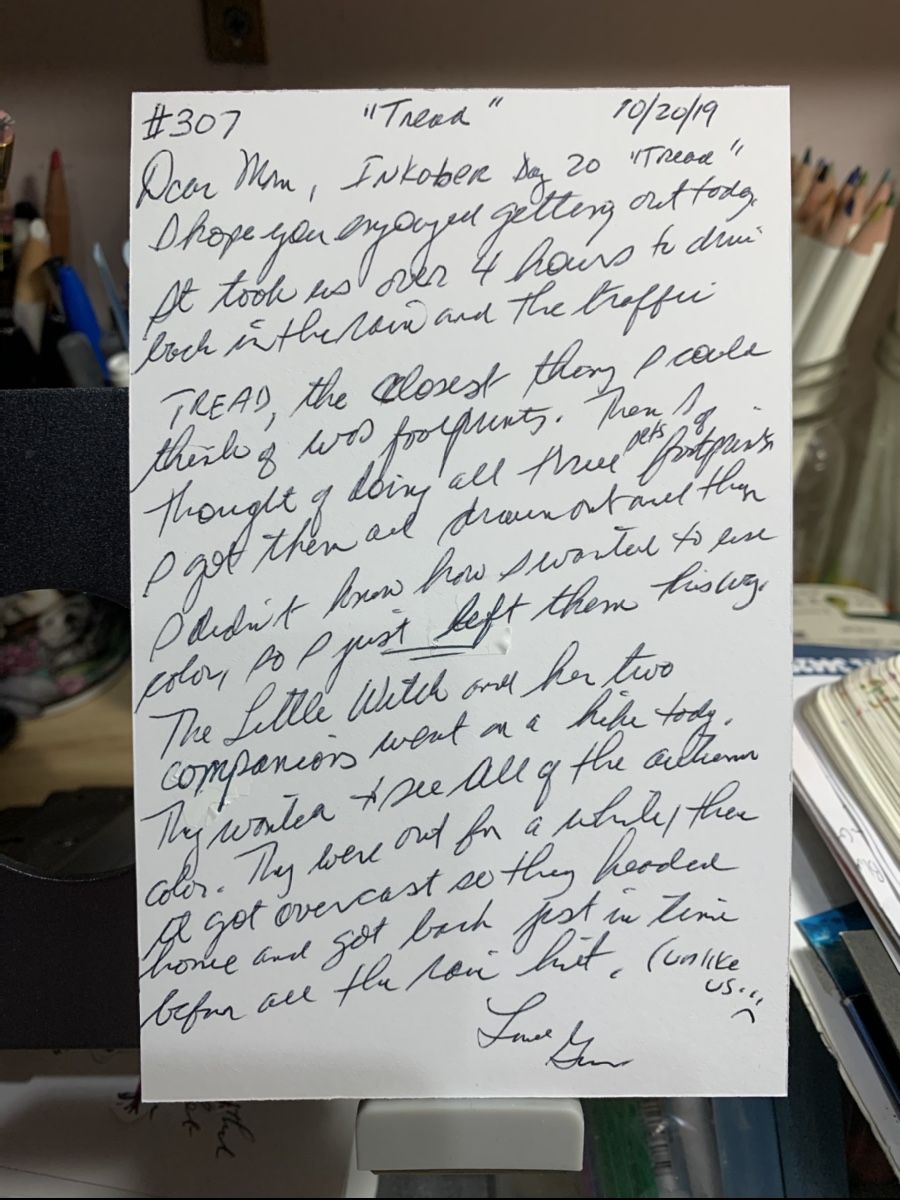 #307 "Tread" 10/20/19
Dear Mom, INKtober Day 20 "Tread"
I hope you enjoyed getting out today.
It took us over 4 hours to drive
back in the rain and the traffic
TREAD, the closest thing I could
think of was footprints. Then I
thought of doing all three pets footprints.
I got them all drawn out and then
I didn't know how I wanted to use
color, so I just left them this way.
The Little Witch and her two
companions went on a hike today.
They wanted to see All of the autumn
color. They were out for a while, then
it got overcast so they headed
home and got back just in time
before all the rain hit. (unlike
us...
Love